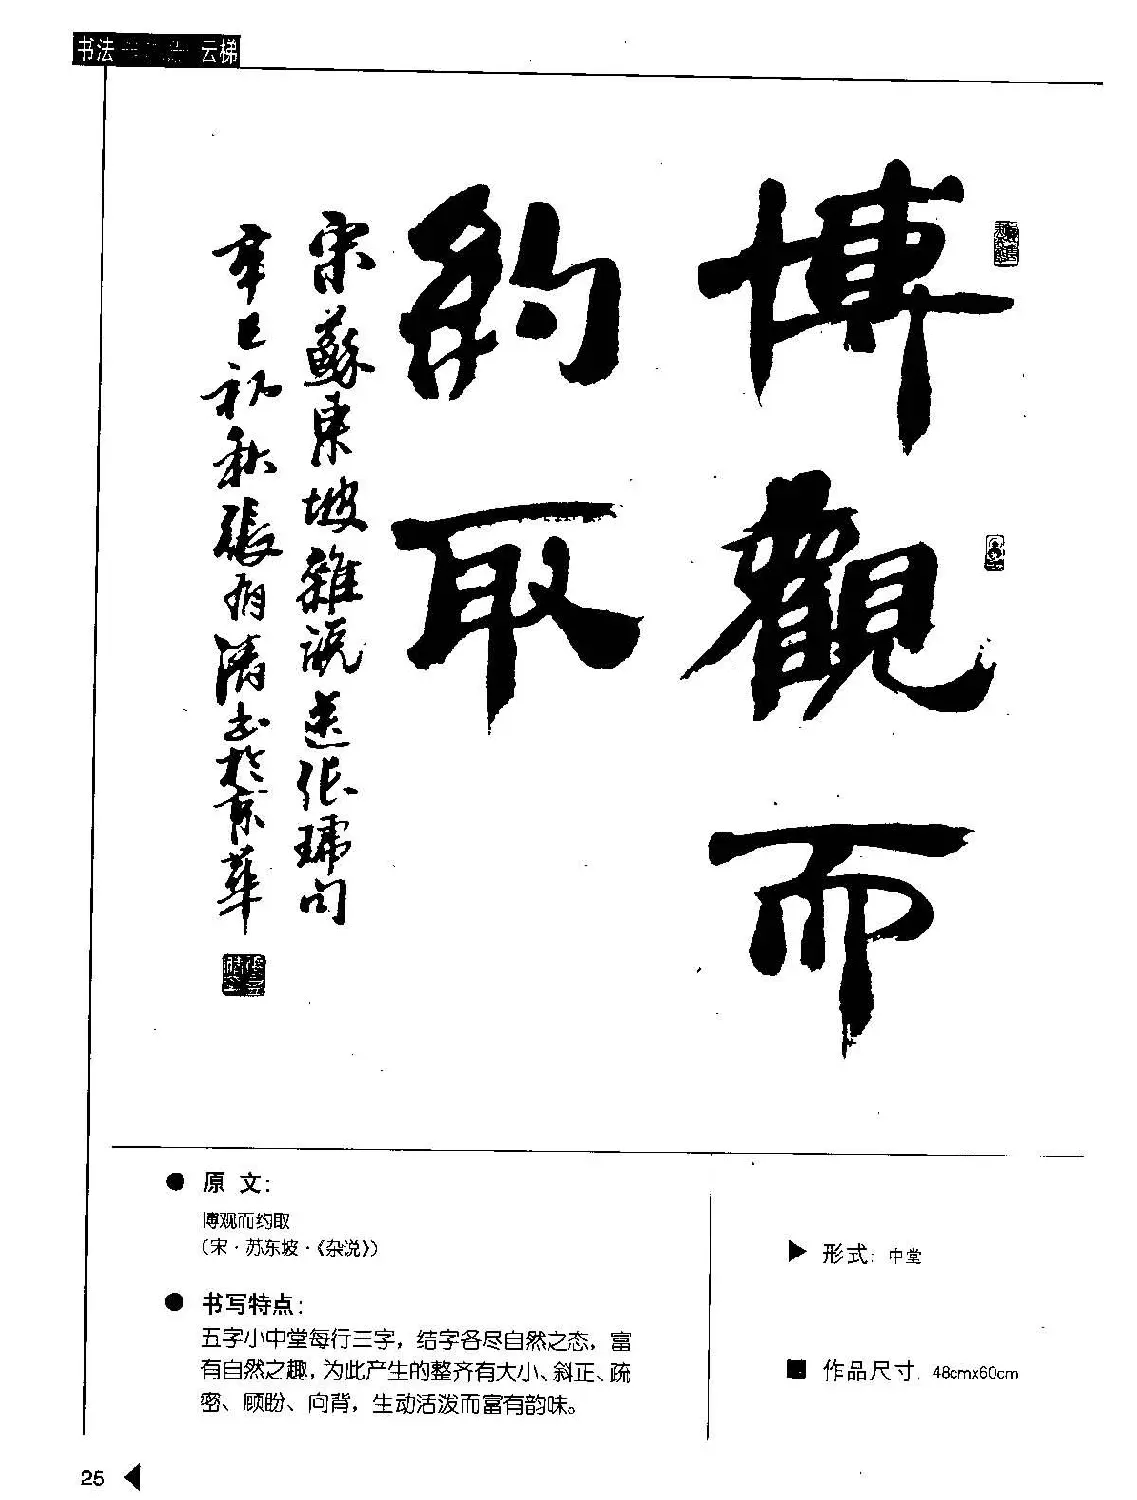 书法 云梯
博觀而
約取
宋蘇東坡雜說送张琥句
辛巳初秋張有清书於京華
● 原 文：
博观而约取
（宋·苏东坡·《杂说》）
● 书写特点：
五字小中堂每行三字，结字各尽自然之态，富
有自然之趣，为此产生的整齐有大小、斜正、疏
密、顾盼、向背，生动活泼而富有韵味。
▶ 形式：中堂
■ 作品尺寸：48cmx60cm
25 ◀